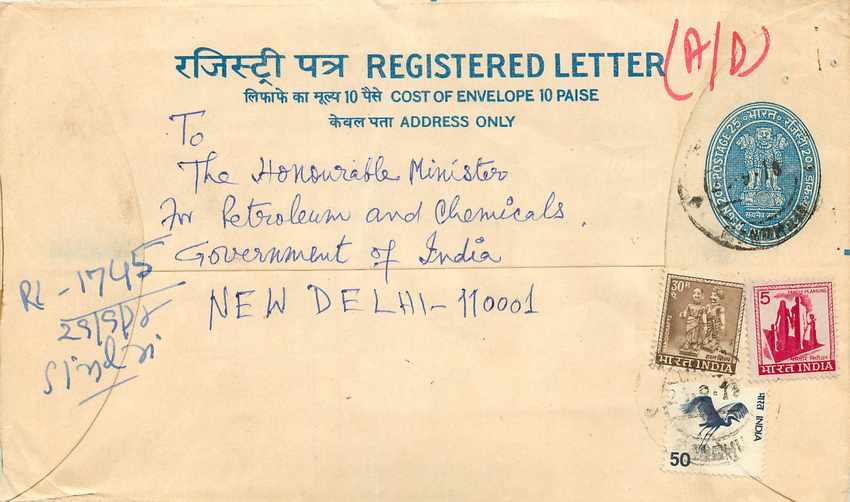 रजिस्ट्री पत्र REGISTERED LETTER
(A/D)
लिफाफे का मूल्य 10 पैसे COST OF ENVELOPE 10 PAISE
केवल पता ADDRESS ONLY
To
The Honourable Minister
For Petroleum and Chemicals,
Government of India
NEW DELHI-110001
RL-1745
Sindri
POSTAGE 25 भारत रजिस्ट्री 200
30 P
भारत INDIA
5
FAMILY PLANNING
भारत INDIA
भारत INDIA
50